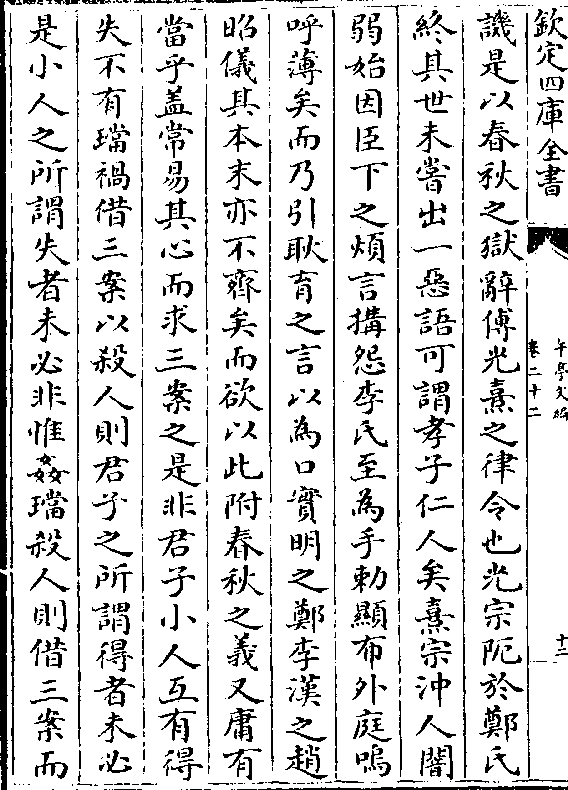 欽定四庫全書
午亭文編
卷二十二
十二
譏是以春秋之獄辭傅光熹之律令也光宗阨於鄭氏
終其世未嘗出一惡語可謂孝子仁人矣熹宗沖人闇
弱始因臣下之煩言搆怨李氏至為手勅顯布外庭嗚
呼薄矣而乃引耿育之言以為口實明之鄭李漢之趙
昭儀其本末亦不齊矣而欲以此附春秋之義又庸有
當乎葢常易其心而求三案之是非君子小人互有得
失不有璫禍借三案以殺人則君子之所謂得者未必
是小人之所謂失者未必非惟姦璫殺人則借三案而